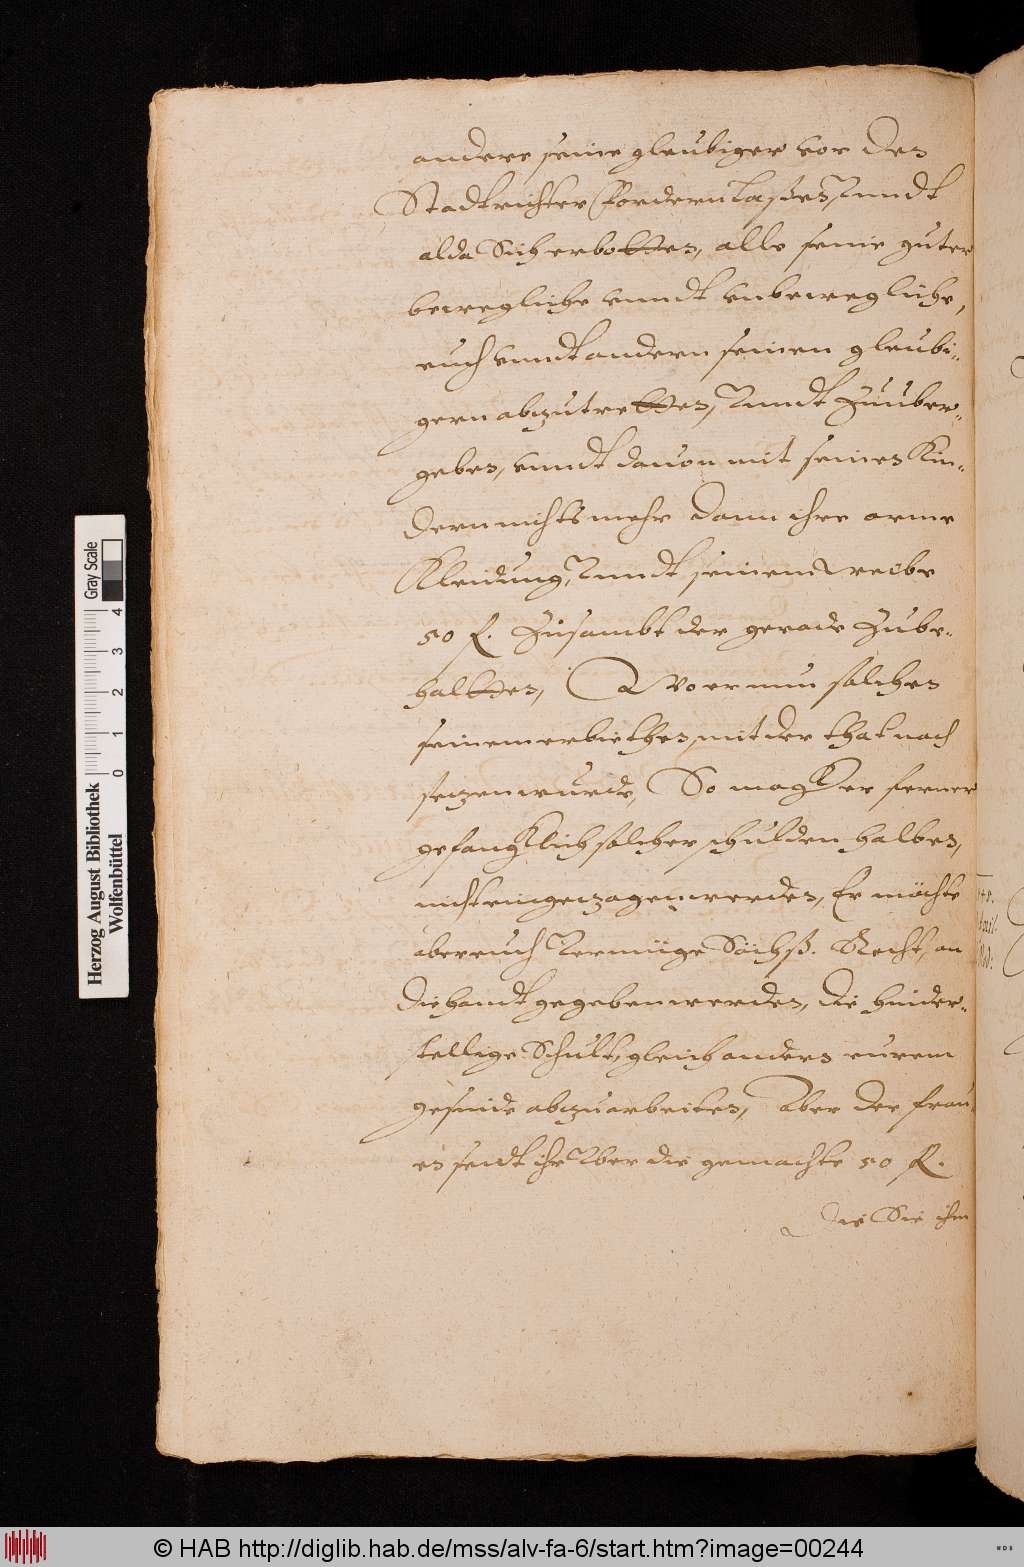 andere seine gleubiger vor den
Stadtrichter Fordern laßen, Vnndt
alda Sich erbotten, alle seine guter
bewegliche vnndt vnbewegliche,
euch vnndt andern seinen gleubi-
gern abzutretten, Vnndt Zuuber-
geben, vnndt dauon mit seinen Kin-
dern nichts mehr dann ihre arme
Kleidung, Vnndt seinem Weibe
50 fl. Zusambt der gerade Zube-
haltten, Wo er nun solchen
seinem erbiethen mit der that nach
sezen wurde, So magk er ferner
gefangklich solcher schulden halben,
nicht eingezogen werden, Er möchte
aber euch Vermüge Sächß. Recht, an
die handt gegeben werden, die hinder-
stellige Schult, gleich andern eurem
gesinde abzuarbeiten, Aber der frau-
en seidt ihr Vber die gemachte 50 fl.
die Sie ihm
Herzog August Bibliothek
Wolfenbüttel
Gray Scale
0 1 2 3 4
© HAB http://diglib.hab.de/mss/alv-fa-6/start.htm?image=00244